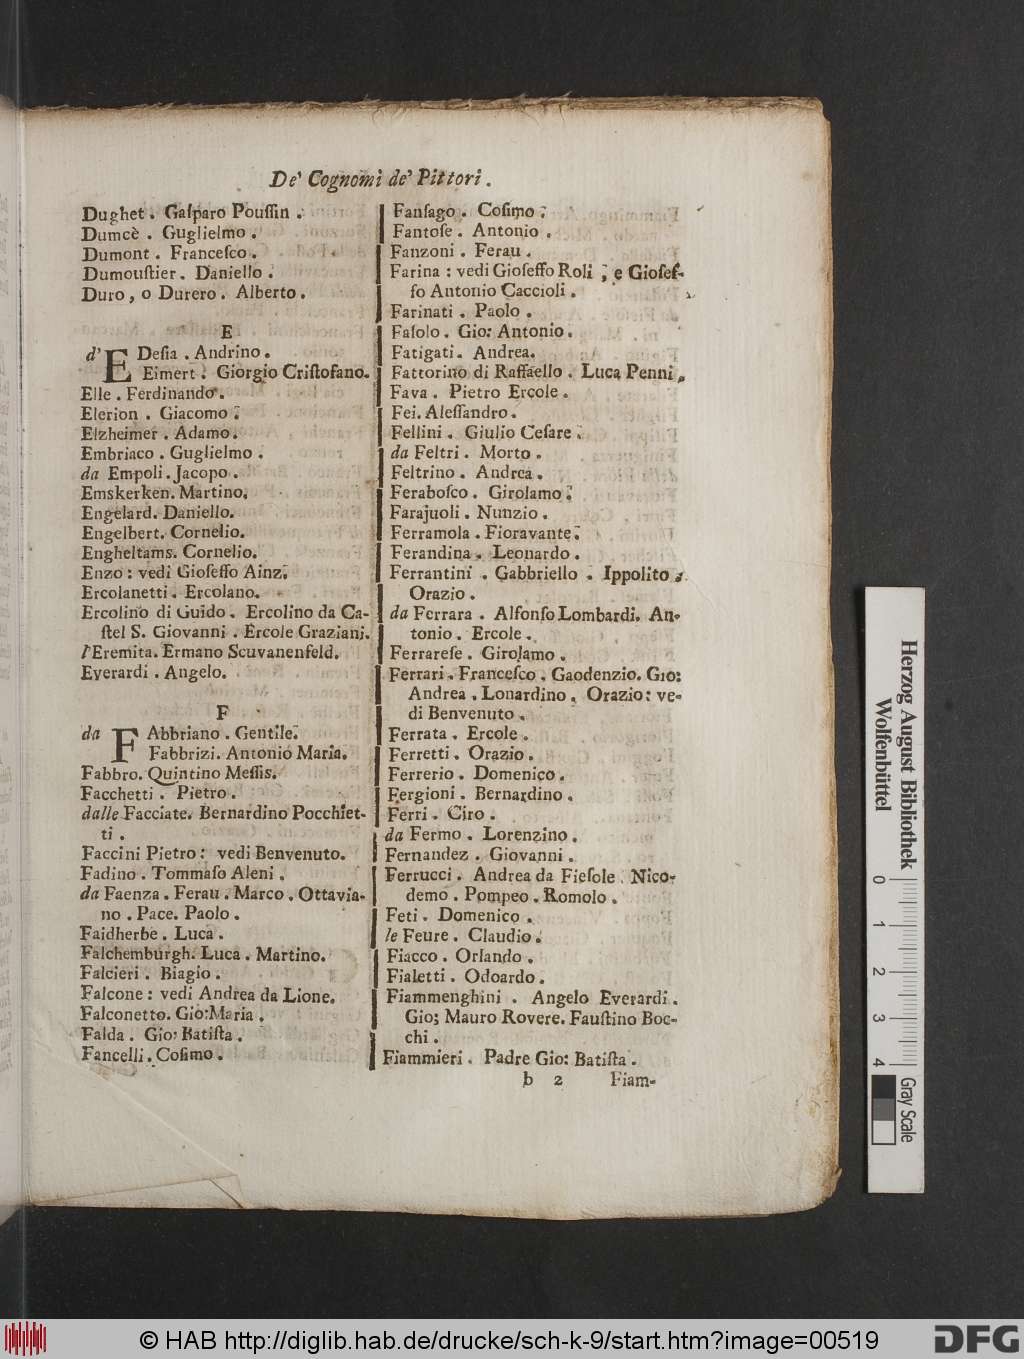 De' Cognomi de' Pittori.
Dughet. Gaſparo Pouſſin.
Dumcè. Guglielmo.
Dumont. Franceſco.
Dumouſtier. Daniello.
Duro, o Durero. Alberto.
E
d' E Deſia. Andrino.
Eimert. Giorgio Criſtofano.
Elle. Ferdinando.
Elerion. Giacomo.
Elzheimer. Adamo.
Embriaco. Guglielmo.
da Empoli. Jacopo.
Emskerken. Martino.
Engelard. Daniello.
Engelbert. Cornelio.
Engheltams. Cornelio.
Enzo: vedi Gioſeffo Ainz.
Ercolanetti. Ercolano.
Ercolino di Guido. Ercolino da Ca-
ſtel S. Giovanni. Ercole Graziani.
l'Eremita. Ermano Scuvanenfeld.
Everardi. Angelo.
F
da F Abbriano. Gentile.
Fabbrizi. Antonio Maria.
Fabbro. Quintino Meſſis.
Facchetti. Pietro.
dalle Facciate. Bernardino Pocchiet-
ti.
Faccini Pietro: vedi Benvenuto.
Fadino. Tommaſo Aleni.
da Faenza. Ferau. Marco. Ottavia-
no. Pace. Paolo.
Faidherbe. Luca.
Falchemburgh. Luca. Martino.
Falcieri. Biagio.
Falcone: vedi Andrea da Lione.
Falconetto. Gio: Maria.
Falda. Gio: Batiſta.
Fancelli. Coſimo.
Fanſago. Coſimo.
Fantoſe. Antonio.
Fanzoni. Ferau.
Farina: vedi Gioſeffo Roli, e Gioſef-
fo Antonio Caccioli.
Farinati. Paolo.
Faſolo. Gio: Antonio.
Fatigati. Andrea.
Fattorino di Raffaello. Luca Penni.
Fava. Pietro Ercole.
Fei. Aleſſandro.
Fellini. Giulio Ceſare.
da Feltri. Morto.
Feltrino. Andrea.
Feraboſco. Girolamo.
Farajuoli. Nunzio.
Ferramola. Fioravante.
Ferandina. Leonardo.
Ferrantini. Gabbriello. Ippolito.
Orazio.
da Ferrara. Alfonſo Lombardi. An-
tonio. Ercole.
Ferrareſe. Girolamo.
Ferrari. Franceſco. Gaodenzio. Gio:
Andrea. Lonardino. Orazio: ve-
di Benvenuto.
Ferrata. Ercole.
Ferretti. Orazio.
Ferrerio. Domenico.
Fergioni. Bernardino.
Ferri. Ciro.
da Fermo. Lorenzino.
Fernandez. Giovanni.
Ferrucci. Andrea da Fieſole. Nico-
demo. Pompeo. Romolo.
Feti. Domenico.
le Feure. Claudio.
Fiacco. Orlando.
Fialetti. Odoardo.
Fiammenghini. Angelo Everardi.
Gio; Mauro Rovere. Fauſtino Boc-
chi.
Fiammieri. Padre Gio: Batiſta.
b 2 Fiam-
Herzog August Bibliothek
Wolfenbüttel
0 1 2 3 4
Gray Scale
© HAB http://diglib.hab.de/drucke/sch-k-9/start.htm?image=00519
DFG